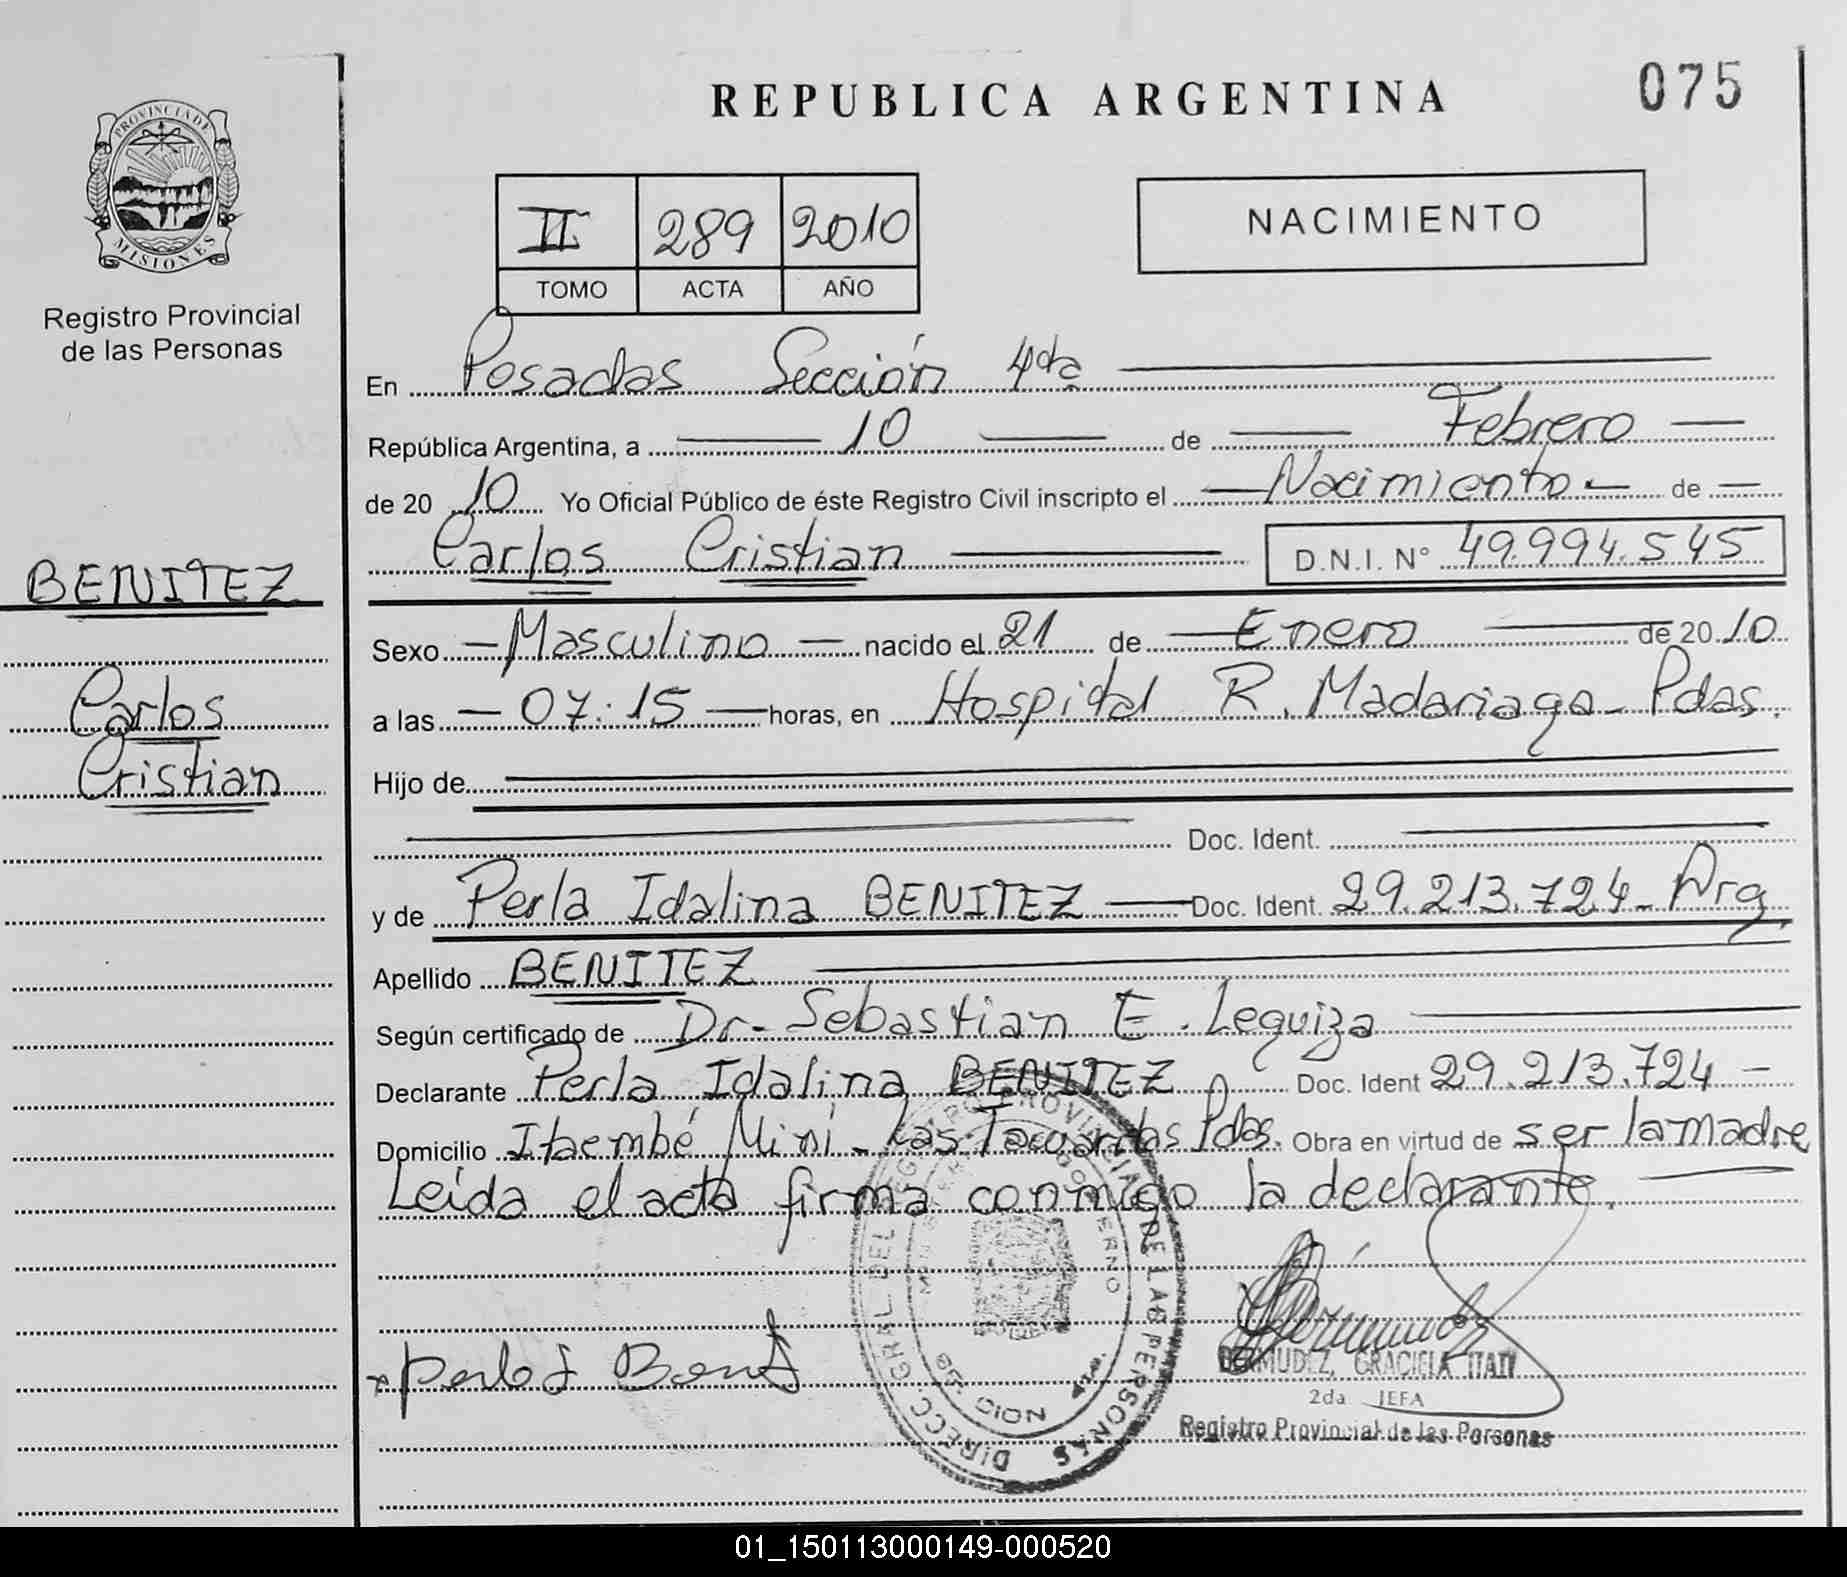 REPUBLICA ARGENTINA
075
PROVINCIA DE
MISIONES
Registro Provincial
de las Personas
II 289 2010
TOMO ACTA AÑO
NACIMIENTO
En Posadas Sección 4ta
República Argentina, a 10 de Febrero
de 20 10 Yo Oficial Público de éste Registro Civil inscripto el Nacimiento de
Carlos Cristian D.N.I. N° 49.994.545
BENITEZ
Carlos
Cristian
Sexo Masculino nacido el 21 de Enero de 20 10
a las 07:15 horas, en Hospital R. Madariaga - Pdas.
Hijo de
Doc. Ident.
y de Perla Idalina BENITEZ Doc. Ident. 29.213.724 - Arg.
Apellido BENITEZ
Según certificado de Dr. Sebastian E. Leguiza
Declarante Perla Idalina BENITEZ Doc. Ident 29.213.724 -
Domicilio Itaembé Mini - Las Tacuaritas Pdas. Obra en virtud de ser la madre
Leída el acta firma conmigo la declarante.
DIRECC. GRAL. DEL REGISTRO PROVINCIAL DE LAS PERSONAS
BERMUDEZ, GRACIELA ITATI
2da JEFA
Registro Provincial de las Personas
01_150113000149-000520